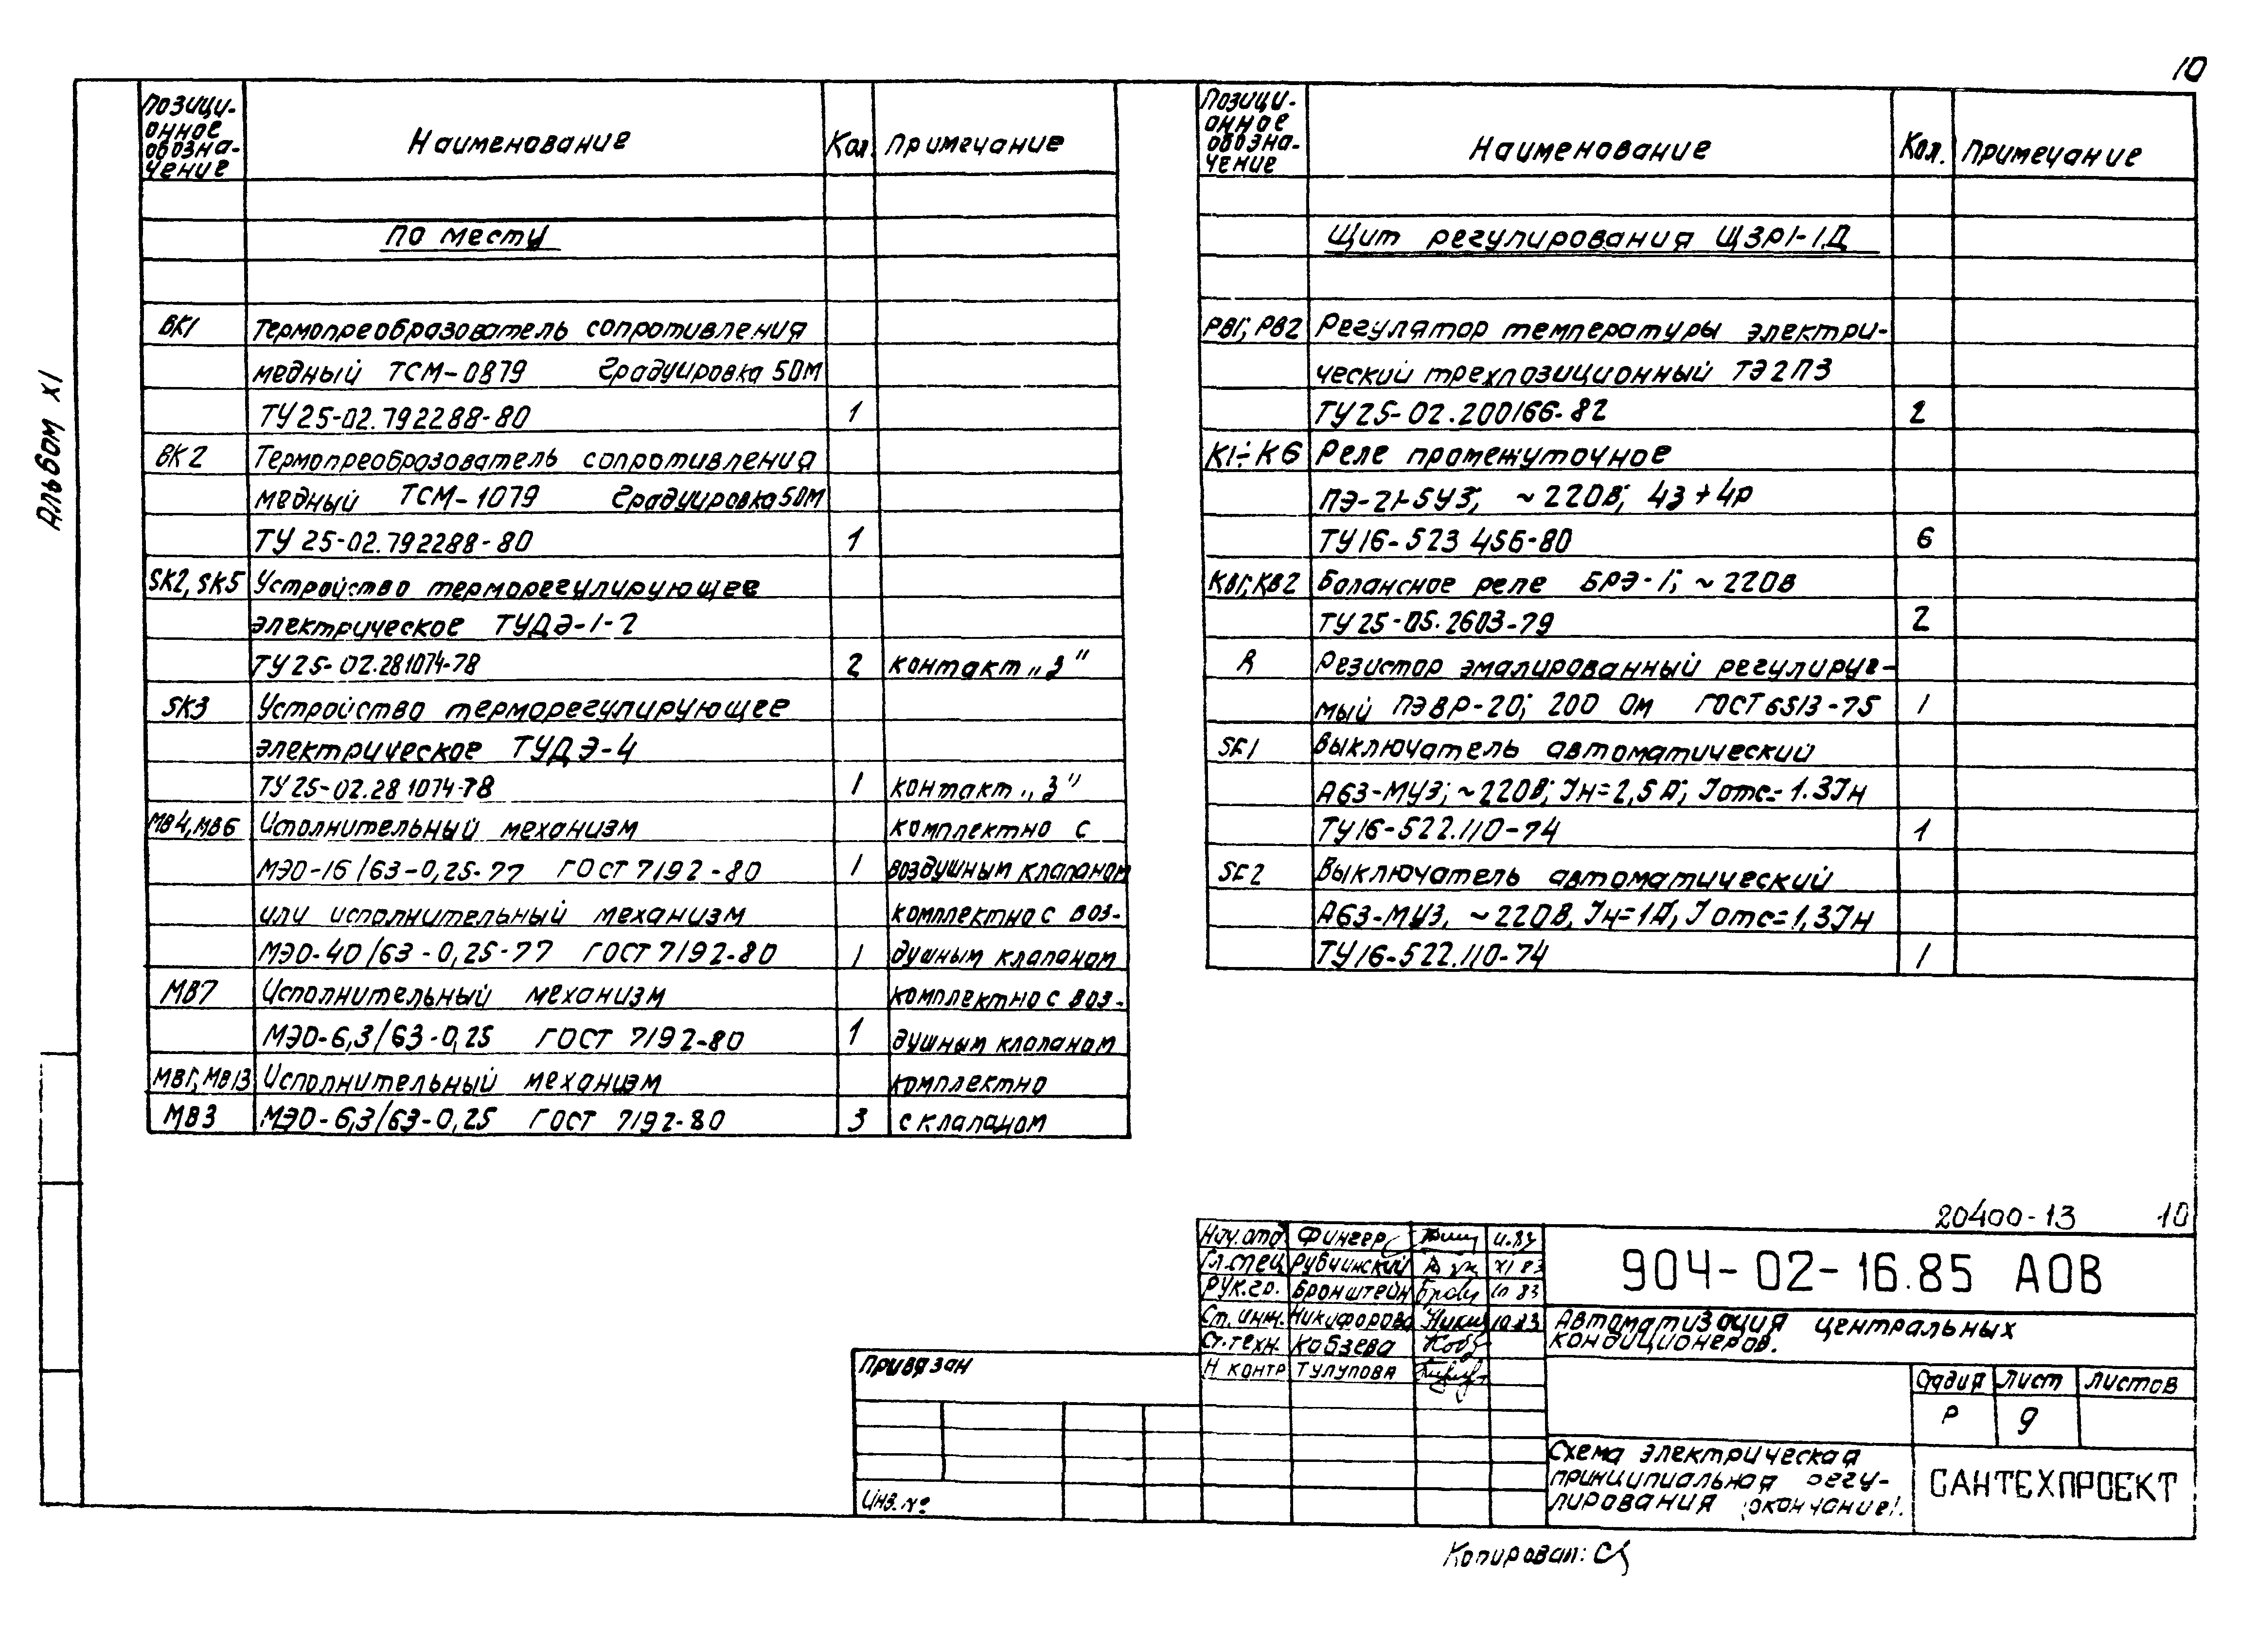 10
Альбом XI
Позици-
онное
обозна-
чение
Наименование
Кол.
Примечание
По месту
ВК1 Термопреобразователь сопротивления
медный ТСМ-0879 Градуировка 50М
ТУ25-02.792288-80 1
ВК2 Термопреобразователь сопротивления
медный ТСМ-1079 Градуировка 50М
ТУ 25-02.792288-80 1
SK2, SK5 Устройство терморегулирующее
электрическое ТУДЭ-1-2
ТУ25-02.281074-78 2 контакт „З"
SK3 Устройство терморегулирующее
электрическое ТУДЭ-4
ТУ25-02.281074-78 1 контакт „З"
МВ4, МВ6 Исполнительный механизм комплектно с
МЭО-16/63-0,25-77 ГОСТ 7192-80 1 воздушным клапаном
или исполнительный механизм комплектно с воз-
МЭО-40/63-0,25-77 ГОСТ 7192-80 1 душным клапаном
МВ7 Исполнительный механизм комплектно с воз-
МЭО-6,3/63-0,25 ГОСТ 7192-80 1 душным клапаном
МВ1, МВ13 Исполнительный механизм комплектно
МВ3 МЭО-6,3/63-0,25 ГОСТ 7192-80 3 с клапаном
Позици-
онное
обозна-
чение
Наименование
Кол.
Примечание
Щит регулирования ЩЗР1-1Д
РВ1; РВ2 Регулятор температуры электри-
ческий трехпозиционный ТЭ2П3
ТУ25-02.200166-82 2
К1÷К6 Реле промежуточное
ПЭ-21-5У3; ~220В; 4з+4р
ТУ16-523 456-80 6
КВ1; КВ2 Балансное реле БРЭ-1; ~220В
ТУ25-05.2603-79 2
R Резистор эмалированный регулируе-
мый ПЭВР-20; 200 Ом ГОСТ 6513-75 1
SF1 Выключатель автоматический
А63-МУ3; ~220В; Iн=2,5А; Iотс=1.3Iн
ТУ16-522.110-74 1
SF2 Выключатель автоматический
А63-МУ3, ~220В, Iн=1А; Iотс=1,3Iн
ТУ16-522.110-74 1
20400-13 10
Нач. отд. Фингер
Гл. спец Рубчинский XI 83
Рук. гр. Бронштейн 10 83
Ст. инж. Никифорова 10.83
Ст. техн. Кобзева
Н контр Тулупова
904-02-16.85 АОВ
Автоматизация центральных
кондиционеров.
Стадия Лист Листов
Р 9
Схема электрическая
принципиальная регу-
лирования (окончание).
САНТЕХПРОЕКТ
Привязан
Инв. №
Копировал: